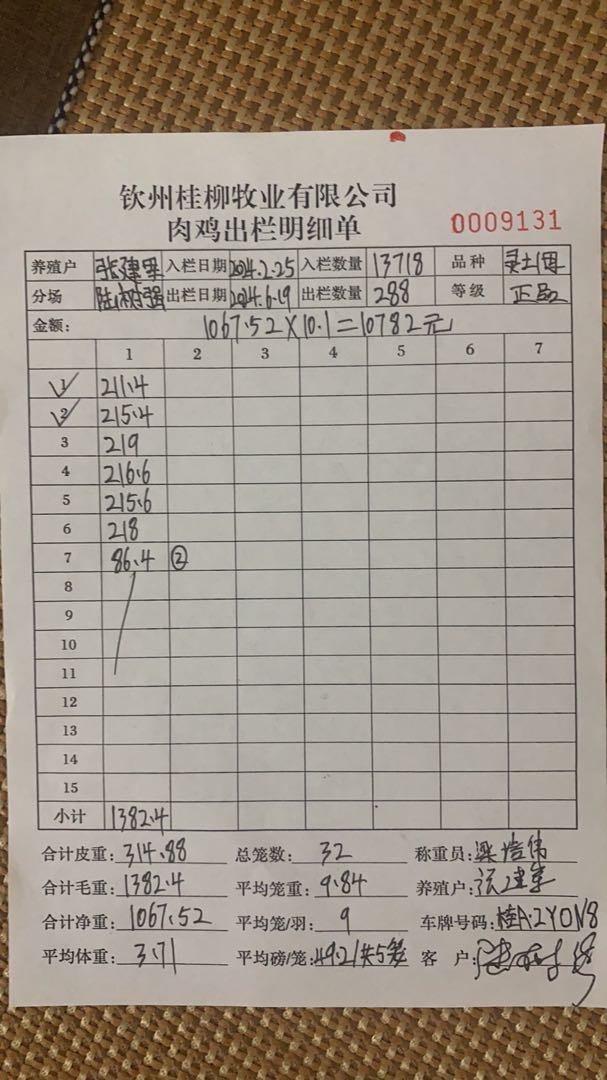 钦州桂柳牧业有限公司
肉鸡出栏明细单 0009131
养殖户 张建军 入栏日期 2024.2.25 入栏数量 13718 品种
分场 陆树强 出栏日期 2024.6.19 出栏数量 288 等级 正品
金额: 1067.52×10.1=10782元
1 2 3 4 5 6 7
1 211.4
2 215.4
3 219
4 216.6
5 215.6
6 218
7 86.4 ②
8
9
10
11
12
13
14
15
小计 1382.4
合计皮重: 314.88 总笼数: 32 称重员: 梁浩伟
合计毛重: 1382.4 平均笼重: 9.84 养殖户: 张建军
合计净重: 1067.52 平均笼/羽: 9 车牌号码: 桂A·2Y0N8
平均体重: 3.71 平均磅/笼: 49.2/共5笼 客 户: